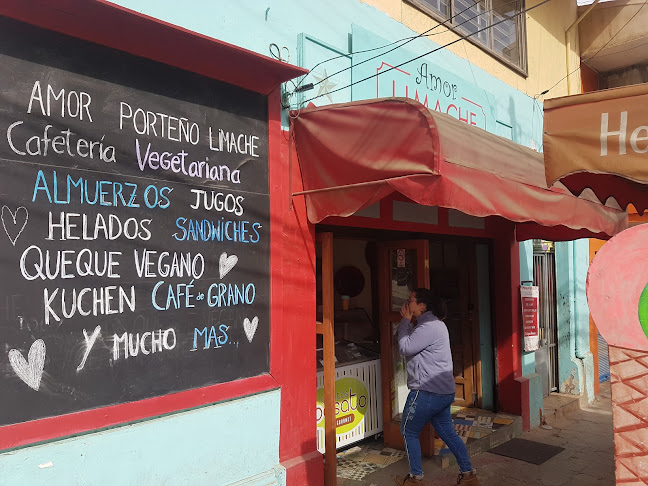 AMOR PORTEÑO LIMACHE
Cafetería Vegetariana
ALMUERZOS JUGOS
HELADOS SANDWICHES
QUEQUE VEGANO
KUCHEN CAFÉ de GRANO
y MUCHO MAS...
Amor
LIMACHE
He